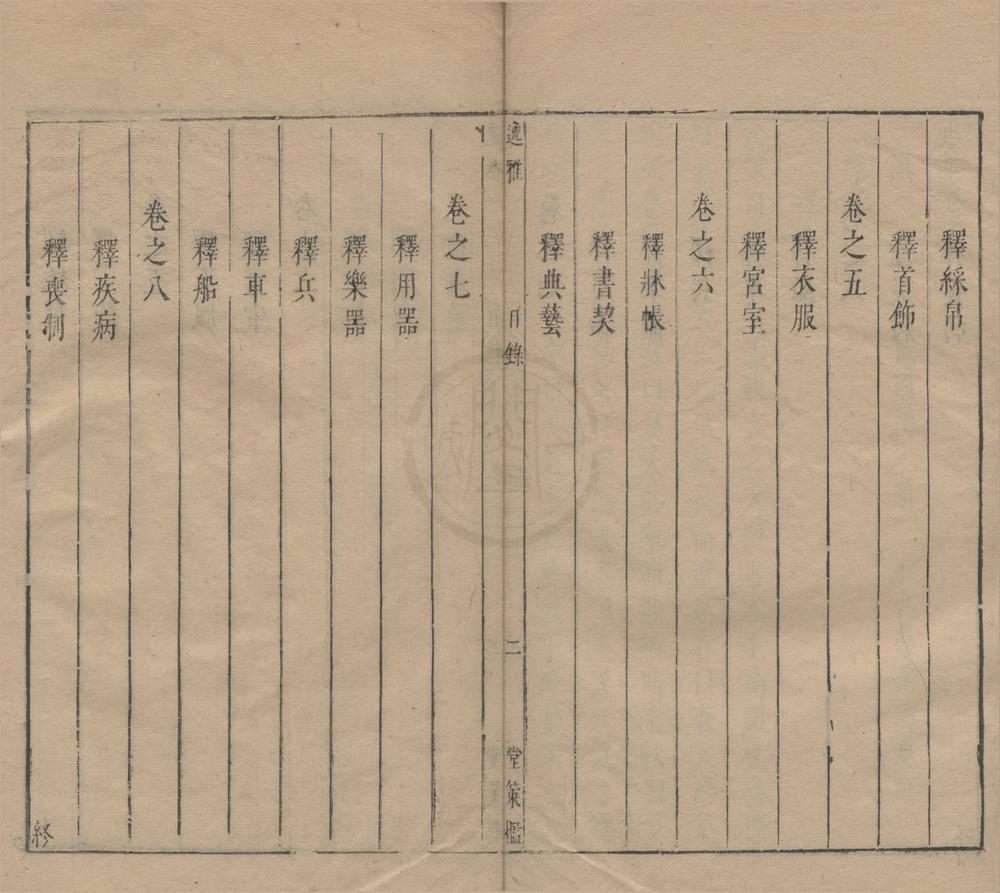 釋綵帛
釋首飾
卷之五
釋衣服
釋宮室
卷之六
釋牀帳
釋書契
釋典藝
逸雅
目錄
二
堂策檻
卷之七
釋用器
釋樂器
釋兵
釋車
釋船
卷之八
釋疾病
釋喪制
終